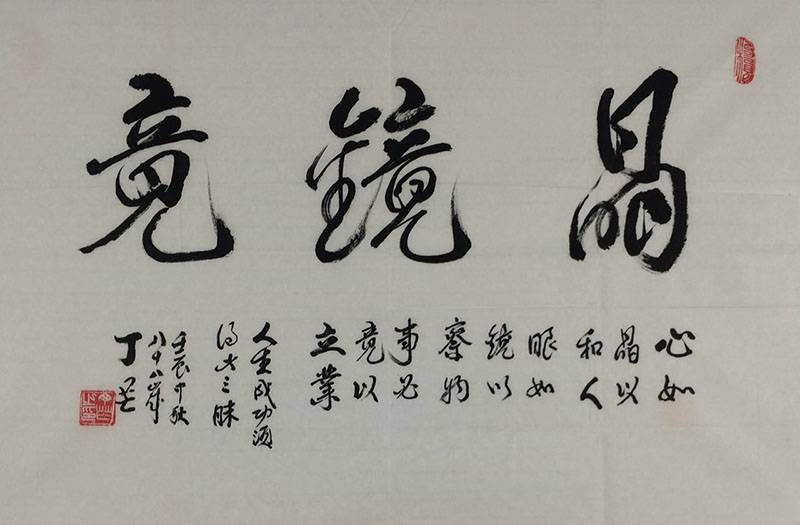 晶鏡竟
心如
晶以
和人
眼如
鏡以
察物
事必
竟以
立業
人生成功須
得此三昧
壬辰中秋
八十八歲
丁芒